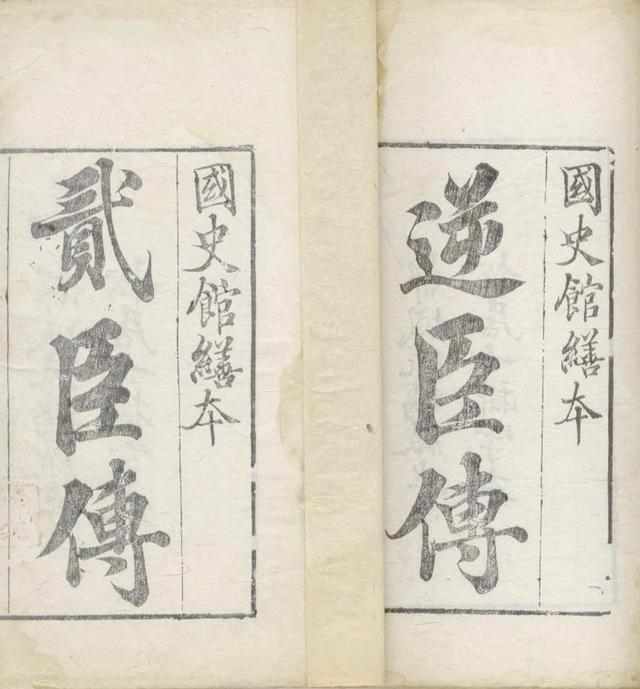 國史館繕本
逆臣傳
國史館繕本
貳臣傳